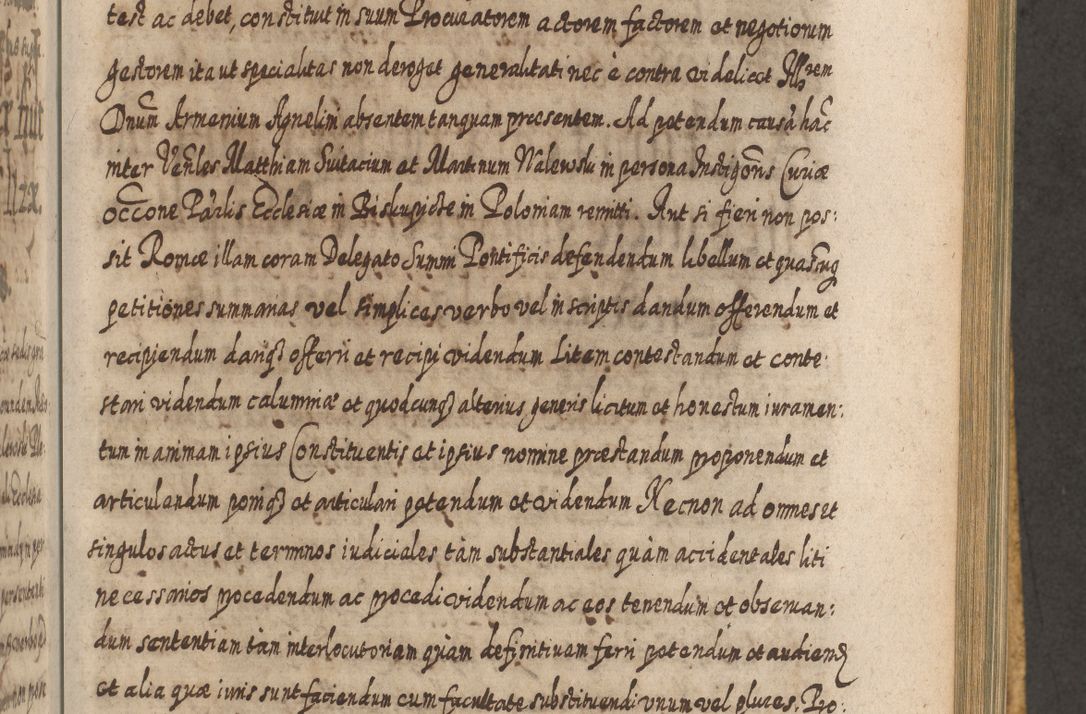 test ac debet, constituit in suum Procuratorem actorem factorem et negotiorum
gestorem ita ut specialitas non deroget generalitati nec è contra videlicet Illrem
Dnum Armenium Agnelim absentem tanquam præsentem. Ad petendum causâ hāc
inter Venles Matthiam Suitacium et Martinum Walewski in persona Instigōris Curiæ
occōne Pārlis Ecclesiæ in Biskupicze in Poloniam remitti. Aut si fieri non pos:
sit Romæ illam coram Delegato Summi Pontificis defendendum libellum et quascūq
petitiones summarias vel simplices verbo vel in scriptis dandum offerendum et
recipiendum dariq3 offerri et recipi videndum Litem contestandum et conte:
stari videndum calumniæ et quodcunq3 alterius generis licitum et honestum iuramen:
tum in animam ipsius Constituentis et ipsius nomine præstandum proponendum et
articulandum poniq3 et articulari petendum et videndum Necnon ad omnes et
singulos actus et terminos iudiciales tàm substantiales quàm accidentales liti
necessarios procedendum ac procedi videndum ac eos tenendum et observan:
dum sententiam tàm interlocutoriam quàm definitivam ferri petendum et audiend
et alia quæ iuris sunt faciendum cum facultate substituendi unum vel plures. Pro: